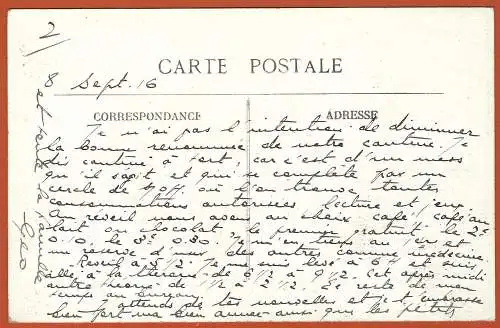 2/
8 Sept. 16
CARTE POSTALE
CORRESPONDANCE
ADRESSE
Je n'ai pas l'intention de diminuer
la bonne renommée de notre cantine. Je
dis cantine à tort, car c'est d'un mess
qu'il s'agit et qui se complète par un
cercle de s/off, où l'on trouve toutes
consommations autorisées lecture et jeux.
Au réveil nous avons au choix : café, café au
lait ou chocolat le premier gratuit le 2e
0.10, le 3e 0.30. Je m'en tiens au 1er et
me réserve d'user des autres comme médecine.
Réveil à 5 1/2. Je me suis levé à 6 H et suis
allé à la théorie de 6 1/2 à 9 1/2. Cet après midi
autre théorie de 1/2 à 2 1/2. Le reste de mon
temps au bureau.
J'attends de tes nouvelles et je t'embrasse
bien fort ma bien aimée ainsi que les petits
et toute la famille
Geo